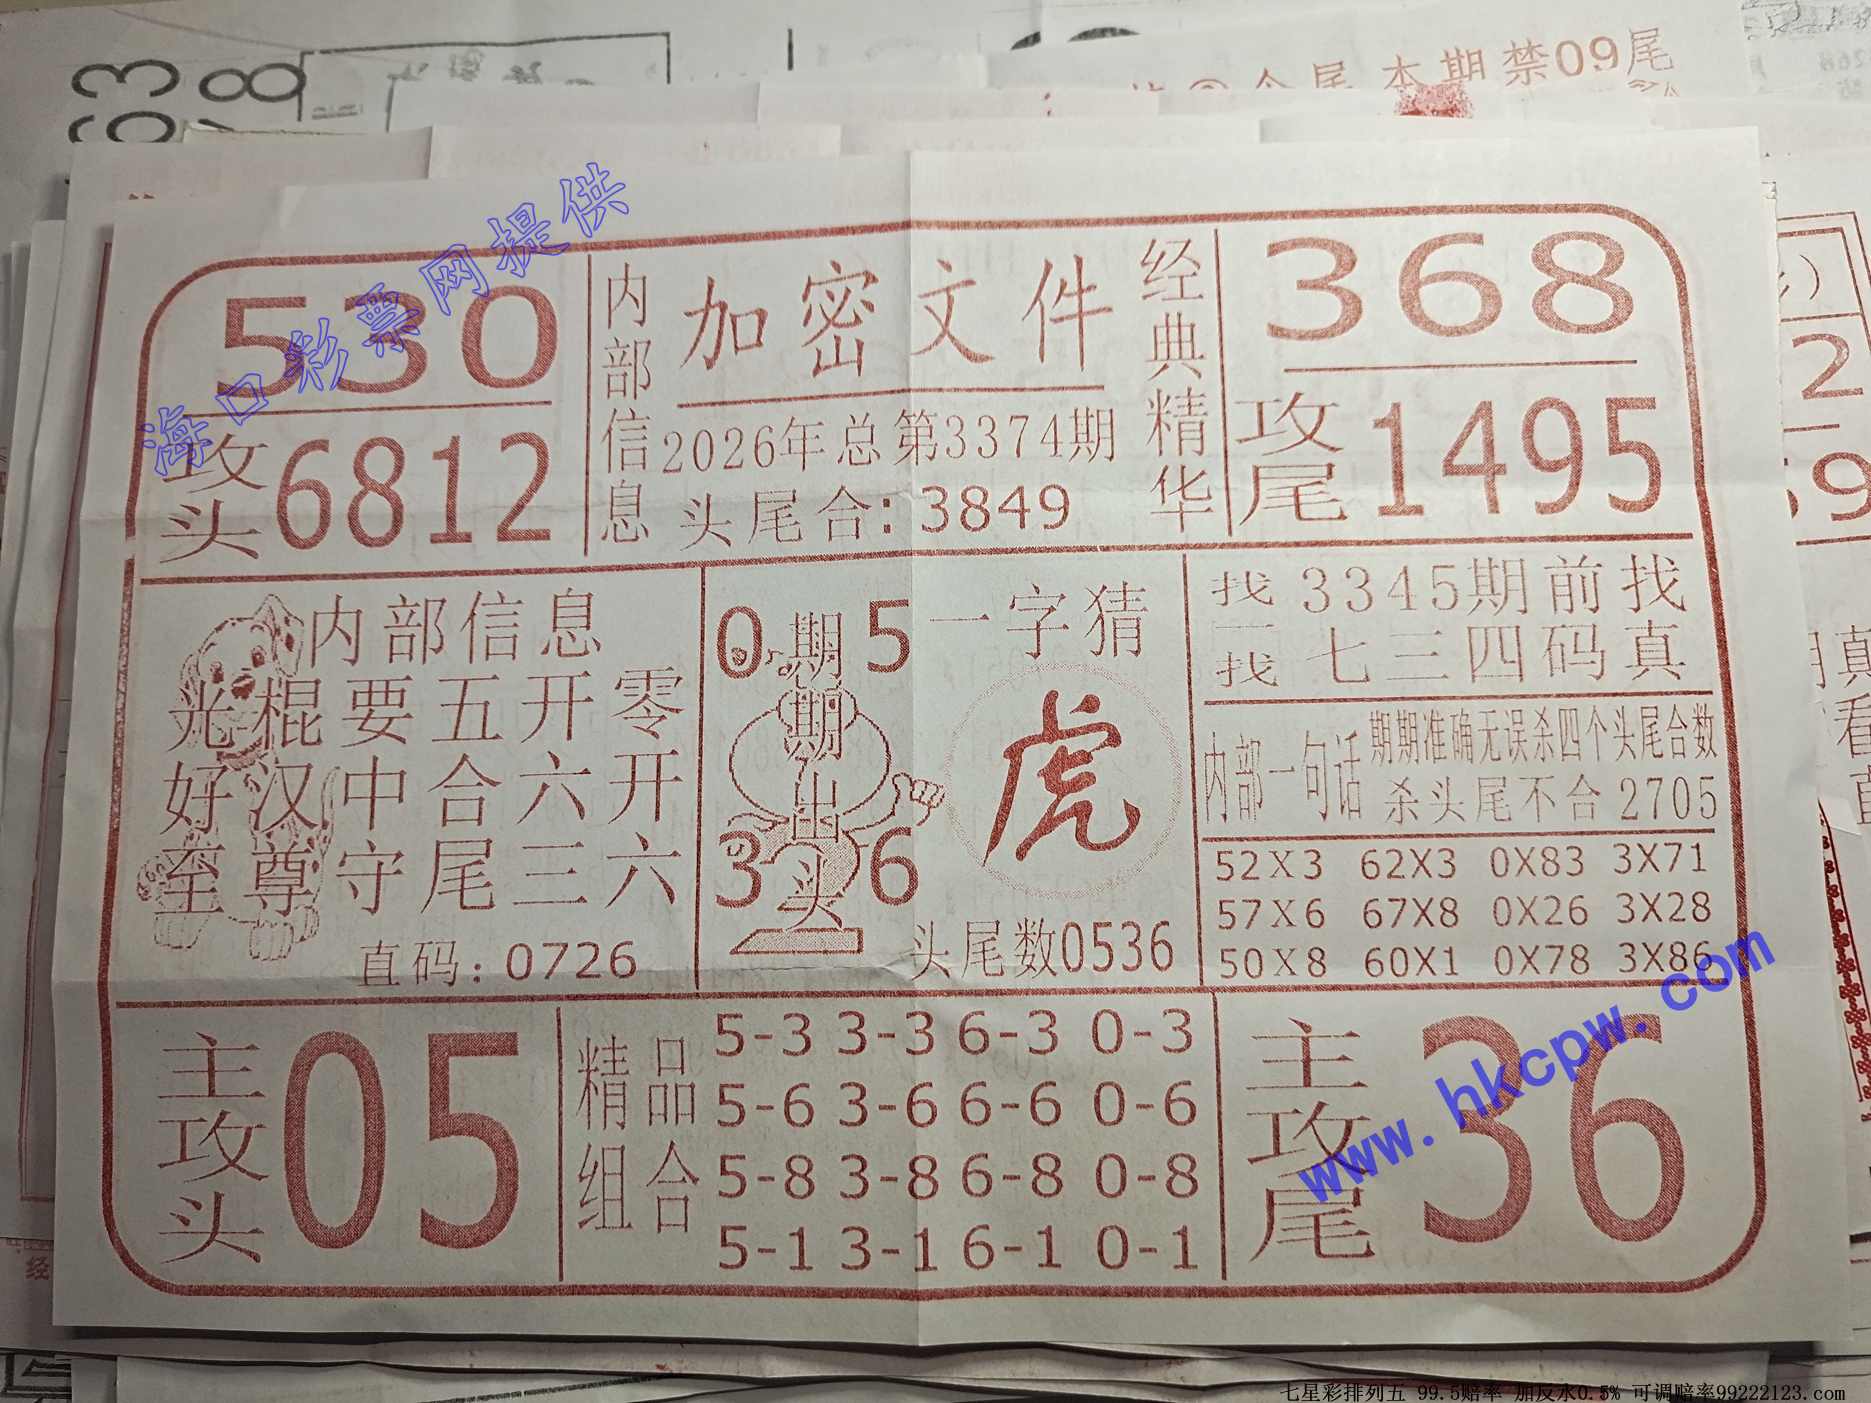 63
78
合尾本期禁09尾
海口彩票网提供
530
攻头6812
内部信息
加密文件
2026年总第3374期
头尾合:3849
经典精华
368
攻尾1495
内部信息
光棍要五开零
好汉中合六开
至尊守尾三六
直码:0726
0 5
期期出头
3 6
一字猜
虎
头尾数0536
找一找
3345期前找
七三四码真
内部一句话
期期准确无误杀四个头尾合数
杀头尾不合2705
52X3 62X3 0X83 3X71
57X6 67X8 0X26 3X28
50X8 60X1 0X78 3X86
主攻头
05
精品组合
5-3 3-3 6-3 0-3
5-6 3-6 6-6 0-6
5-8 3-8 6-8 0-8
5-1 3-1 6-1 0-1
主攻尾
36
www.hkcpw.com
七星彩排列五 99.5赔率 加反水0.5% 可调赔率99222123.com